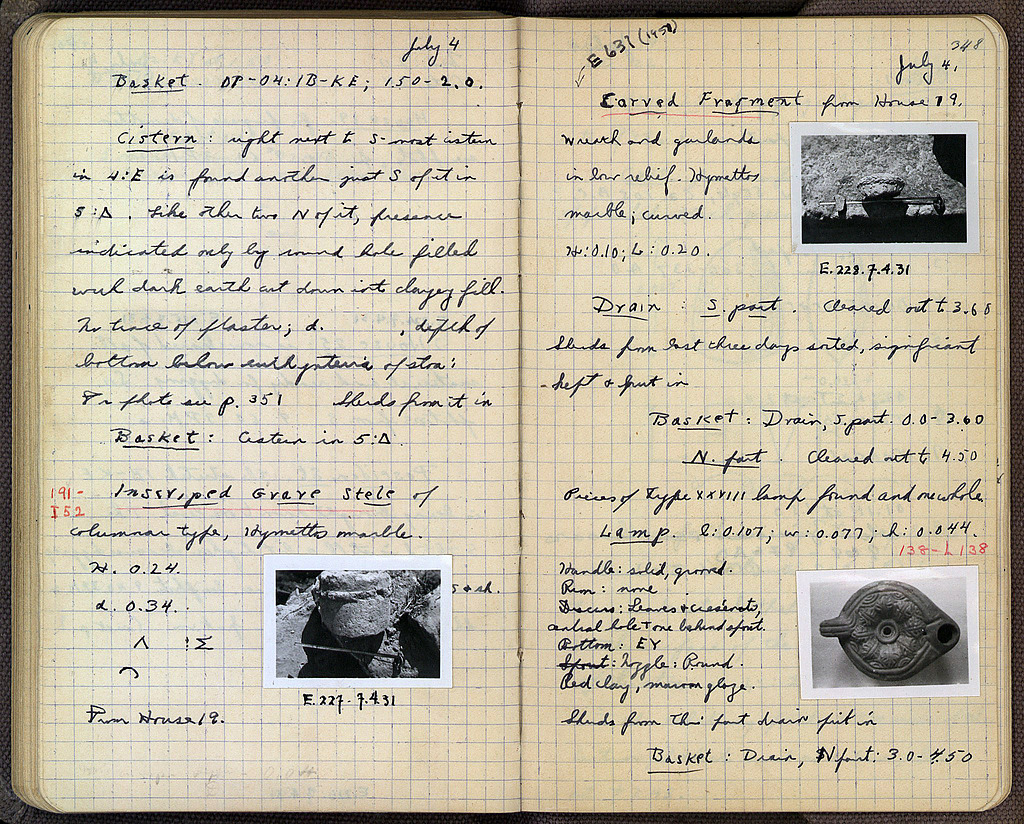 July 4
Basket. DP-04:1B-KE; 1.50-2.0.
Cistern: right next to S-most cistern
in 4:E is found another just S of it in
5:Δ. Like other two N of it, presence
indicated only by round hole filled
with dark earth cut down into clayey fill.
No trace of plaster; d. , depth of
bottom below euthynteria of stoa:
For photo see p. 351 Sherds from it in
Basket: Cistern in 5:Δ
191-
I 52
Inscriped Grave Stele of
columnar type, Hymettos marble.
H. 0.24.
d. 0.34.
Λ !Σ
From House 19.
E.227-7.4.31
348
E 637 (1950)
July 4.
Carved Fragment from House 19.
Wreath and garlands
in low relief. Hymettos
marble; curved.
H:0.10; L: 0.20.
E.228.7.4.31
Drain: S. part. Cleared out to 3.60
Sherds from last three days sorted, significant
kept & put in
Basket: Drain, S. part. 0.0-3.60
N. part. Cleared out to 4.50
Pieces of Type XXVIII lamp found and one whole
Lamp. l: 0.107; w: 0.077; h: 0.044.
138-L 138
Handle: solid, grooved.
Rim: none
Discus: Leaves & crescents,
central hole + one behind spout.
Bottom: EY
Spout: Nozzle: Round.
Red clay, maroon glaze.
Sherds from this part drain put in
Basket: Drain, N part: 3.0-4.50